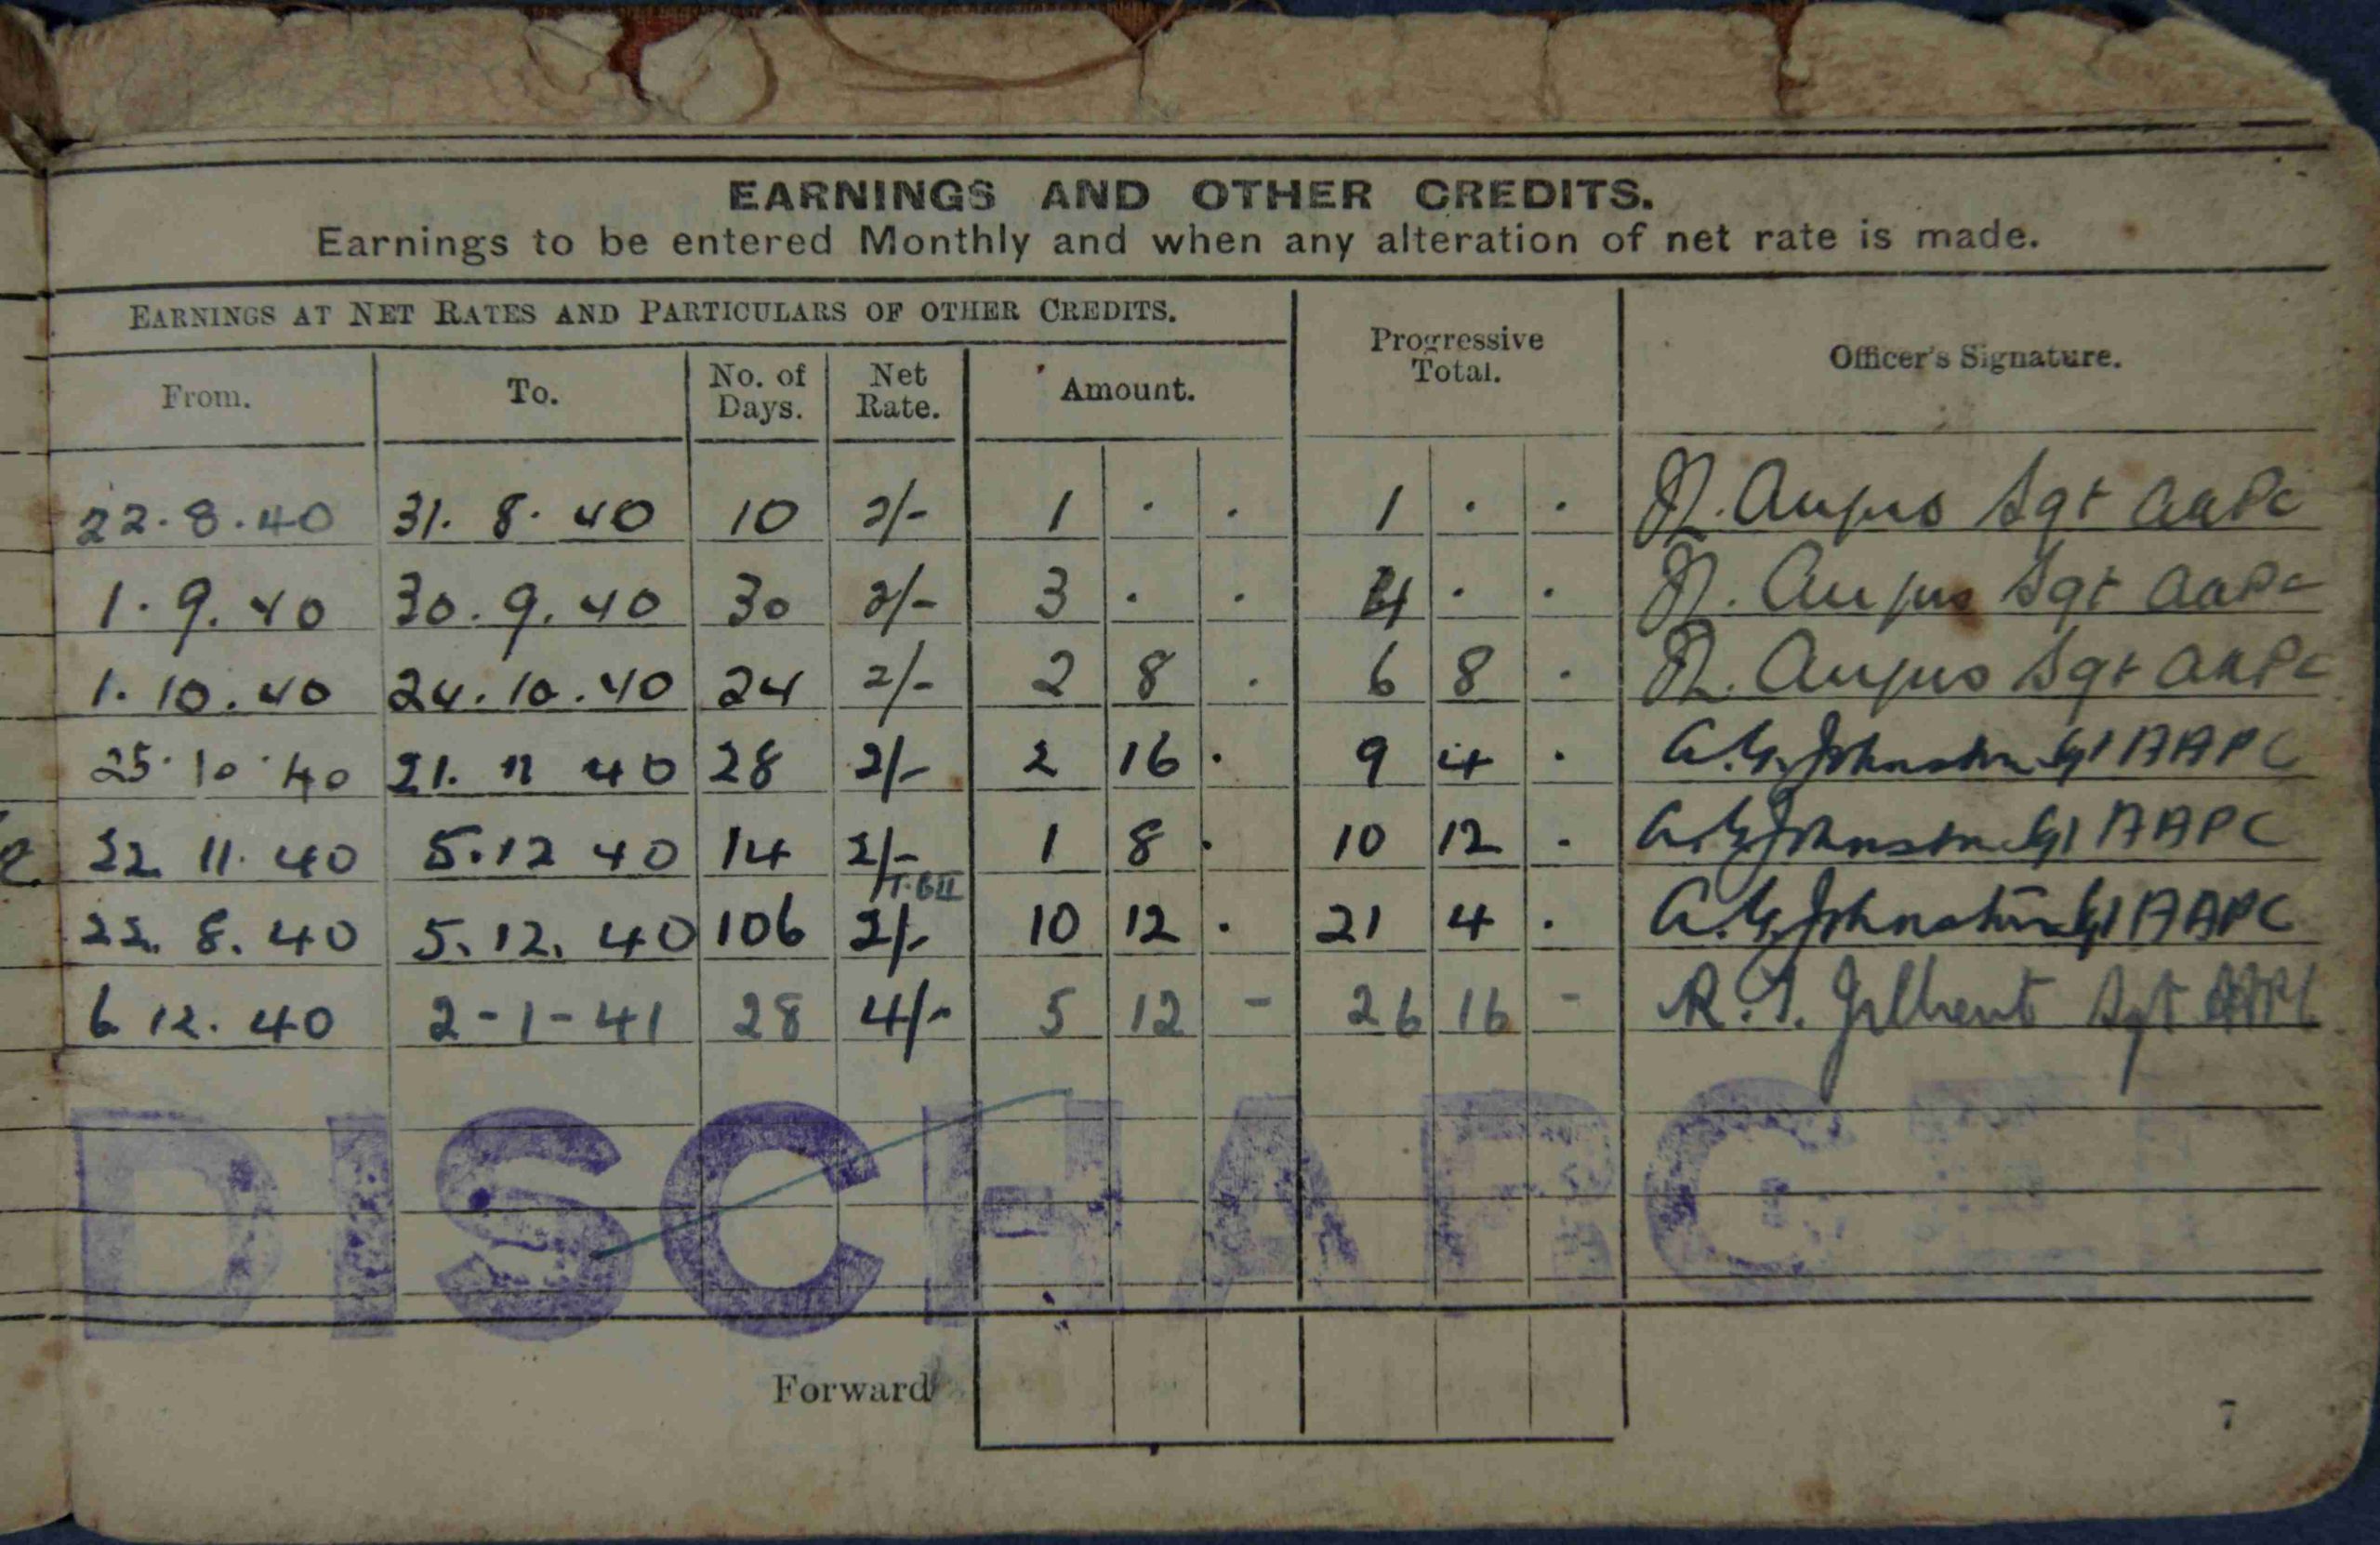 EARNINGS AND OTHER CREDITS.
Earnings to be entered Monthly and when any alteration of net rate is made.
EARNINGS AT NET RATES AND PARTICULARS OF OTHER CREDITS. Progressive Total. Officer's Signature.
From. To. No. of Days. Net Rate. Amount.
22.8.40 31.8.40 10 2/- 1 . . 1 . . Angus Sgt AAPC
1.9.40 30.9.40 30 2/- 3 . . 4 . . Angus Sgt AAPC
1.10.40 24.10.40 24 2/- 2 8 . 6 8 . Angus Sgt AAPC
25.10.40 21.11 40 28 2/- 2 16 . 9 4 . A.G. Johnston Sgt AAPC
22.11.40 5.12 40 14 2/- 1 8 . 10 12 - A.G. Johnston Sgt AAPC
22.8.40 5.12.40 106 2/- 10 12 . 21 4 . A.G. Johnston Sgt AAPC
6 12.40 2-1-41 28 4/- 5 12 - 26 16 - Gilbert Sgt AAPC
DISCHARGED
Forward
7